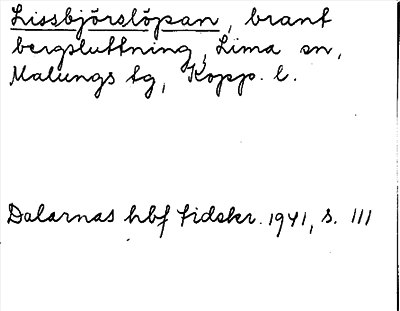 Lissbjörslöpan, brant
bergsluttning, Lima sn,
Malungs tg, Kopp. l.
Dalarnas hbf tidskr. 1941, s. 111